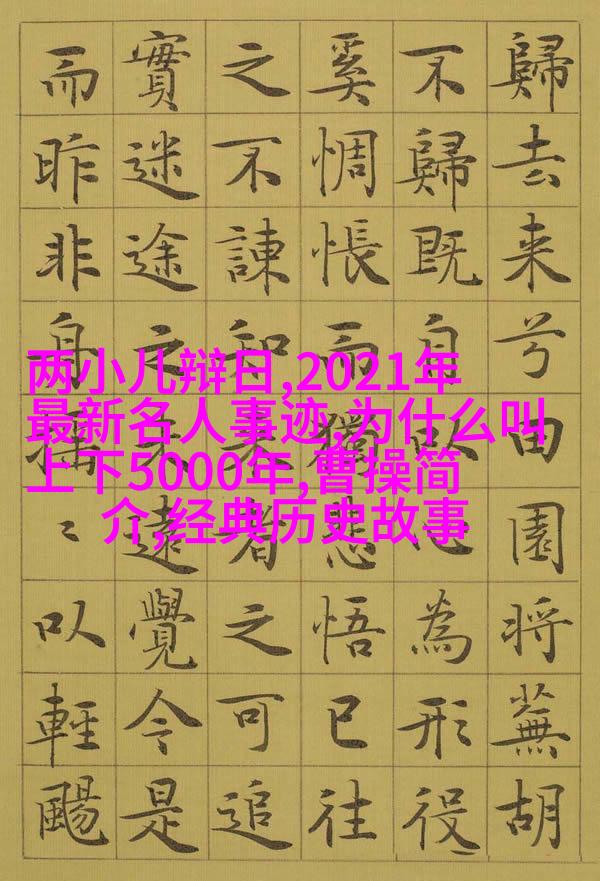 两小儿辩日,2021年
最新名人事迹,为什么叫
上下5000年,曹操简
介,经典历史故事
歸去来兮田園将蕪胡
不歸既自以心為形役
奚惆悵而獨悲悟已往
之不諫知来者之可追
實迷途未遠覺今是
而昨非舟搖〻以輕颺